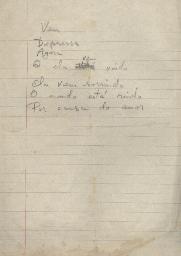 Vem
Depressa
Agora
O ela vindo
Ela vem sorrindo
O mundo está lindo
Por causa do amor